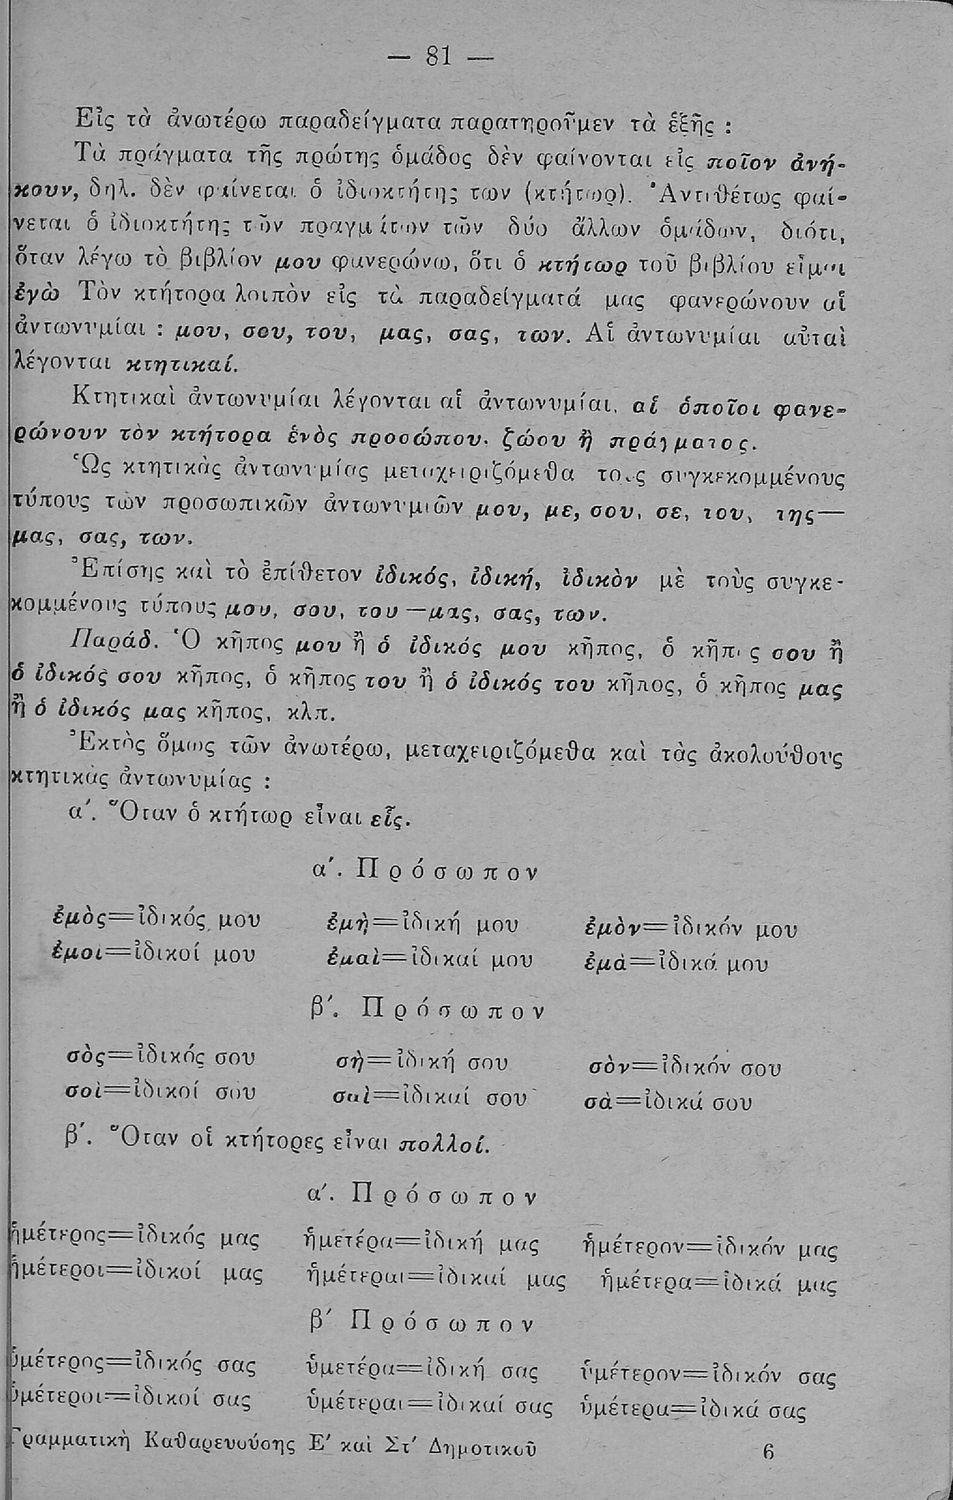 — 81 —
Εἰς τὰ ἀνωτέρω παραδείγματα παρατηροῦμεν τὰ ἑξῆς :
Τὰ πράγματα τῆς πρώτης ὁμάδος δὲν φαίνονται εἰς ποῖον ἀνή-
κουν, δηλ. δὲν φαίνεται ὁ ἰδιοκτήτης των (κτήτωρ). Ἀντιθέτως φαί-
νεται ὁ ἰδιοκτήτης τῶν πραγμάτων τῶν δύο ἄλλων ὁμάδων, διότι,
ὅταν λέγω τὸ βιβλίον μου φανερώνω, ὅτι ὁ κτήτωρ τοῦ βιβλίου εἶμαι
ἐγὼ Τὸν κτήτορα λοιπὸν εἰς τὰ παραδείγματά μας φανερώνουν αἱ
ἀντωνυμίαι : μου, σου, του, μας, σας, των. Αἱ ἀντωνυμίαι αὗται
λέγονται κτητικαί.
Κτητικαὶ ἀντωνυμίαι λέγονται αἱ ἀντωνυμίαι, αἱ ὁποῖοι φανε-
ρώνουν τὸν κτήτορα ἑνὸς προσώπου. ζώου ἢ πράγματος.
Ὡς κτητικὰς ἀντωνυμίας μεταχειριζόμεθα τοὺς συγκεκομμένους
τύπους τῶν προσωπικῶν ἀντωνυμιῶν μου, με, σου, σε, του, της—
μας, σας, των.
Ἐπίσης καὶ τὸ ἐπίθετον ἰδικός, ἰδική, ἰδικὸν μὲ τοὺς συγκε-
κομμένους τύπους μου, σου, του—μας, σας, των.
Παράδ. Ὁ κῆπος μου ἢ ὁ ἰδικός μου κῆπος, ὁ κῆπος σου ἢ
ὁ ἰδικός σου κῆπος, ὁ κῆπος του ἢ ὁ ἰδικός του κῆπος, ὁ κῆπος μας
ἢ ὁ ἰδικός μας κῆπος, κλπ.
Ἐκτὸς ὅμως τῶν ἀνωτέρω, μεταχειριζόμεθα καὶ τὰς ἀκολούθους
κτητικὰς ἀντωνυμίας :
α΄. Ὅταν ὁ κτήτωρ εἶναι εἷς.
α΄. Πρόσωπον
ἐμὸς=ἰδικός μου ἐμὴ=ἰδική μου ἐμὸν=ἰδικόν μου
ἐμοι=ἰδικοί μου ἐμαὶ=ἰδικαί μου ἐμὰ=ἰδικά μου
β΄. Πρόσωπον
σὸς=ἰδικός σου σὴ=ἰδική σου σὸν=ἰδικόν σου
σοὶ=ἰδικοί σου σαὶ=ἰδικαί σου σὰ=ἰδικά σου
β΄. Ὅταν οἱ κτήτορες εἶναι πολλοί.
α΄. Πρόσωπον
ἡμέτερος=ἰδικός μας ἡμετέρα=ἰδική μας ἡμέτερον=ἰδικόν μας
ἡμέτεροι=ἰδικοί μας ἡμέτεραι=ἰδικαί μας ἡμέτερα=ἰδικά μας
β΄ Πρόσωπον
ὑμέτερος=ἰδικός σας ὑμετέρα=ἰδική σας ὑμέτερον=ἰδικόν σας
ὑμέτεροι=ἰδικοί σας ὑμέτεραι=ἰδικαί σας ὑμέτερα=ἰδικά σας
Γραμματικὴ Καθαρευούσης Ε΄ καὶ Στ΄ Δημοτικοῦ 6